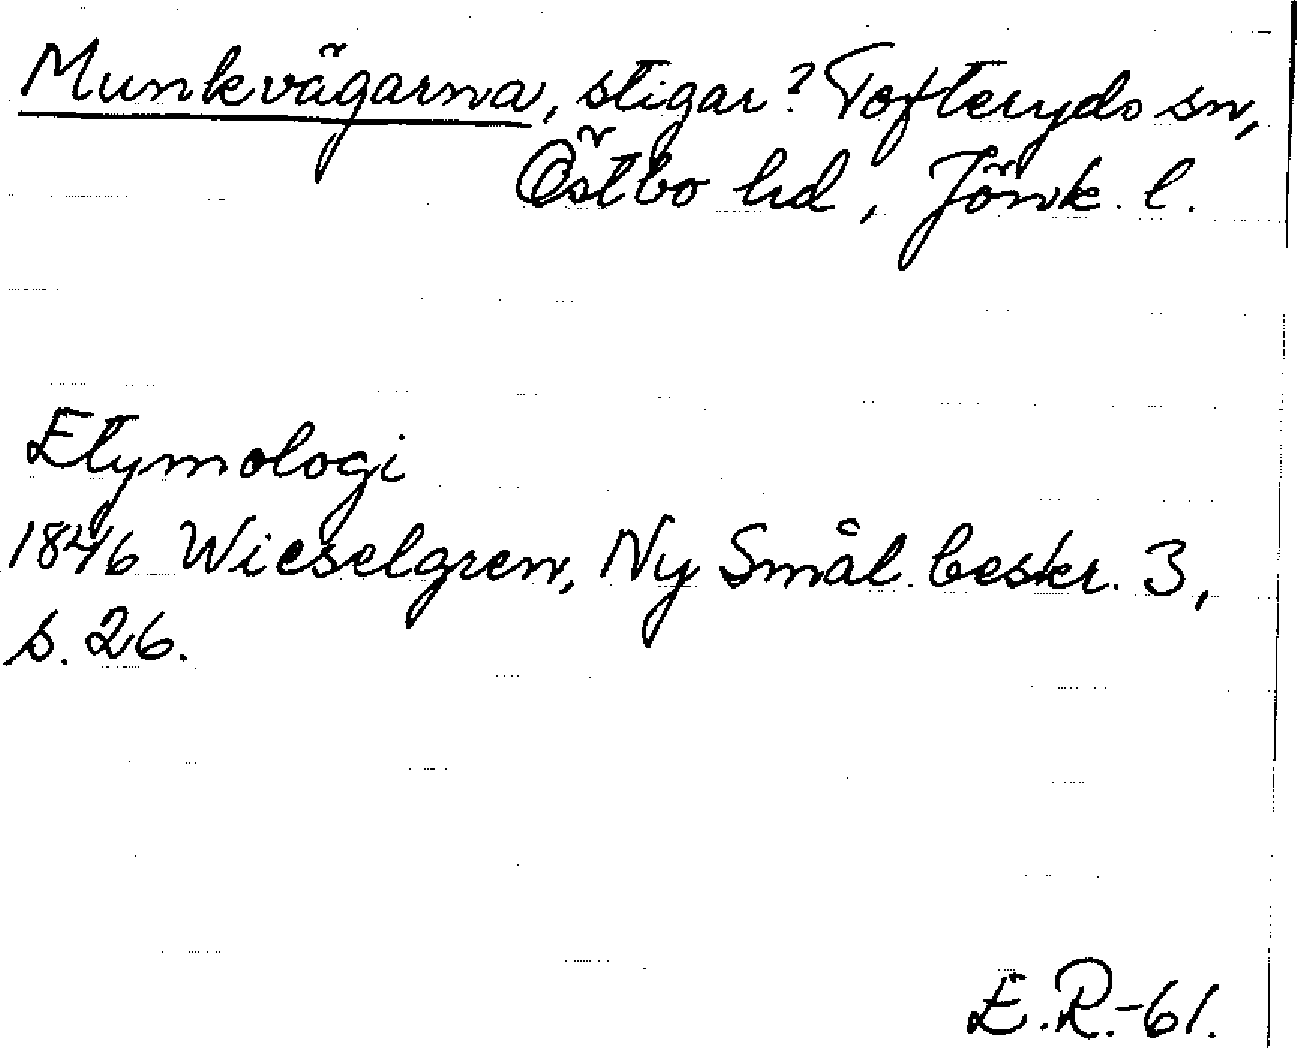 Munkvägarna, stigar? Tofteryds sn,
Östbo hd, Jönk. l.
Etymologi
1846 Wieselgren, Ny Smål. beskr. 3,
s. 26.
E.R.-61.